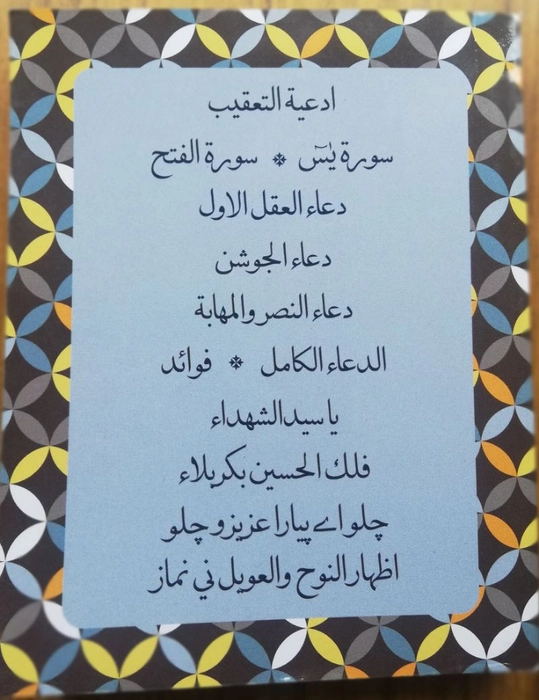 ادعية التعقيب
سورة يٰسٓ ❈ سورة الفتح
دعاء العقل الاول
دعاء الجوشن
دعاء النصر والمهابة
الدعاء الكامل ❈ فوائد
يا سيد الشهداء
فلك الحسين بكربلاء
چلو اے پيارا عزيزو چلو
اظهار النوح والعويل ني نماز